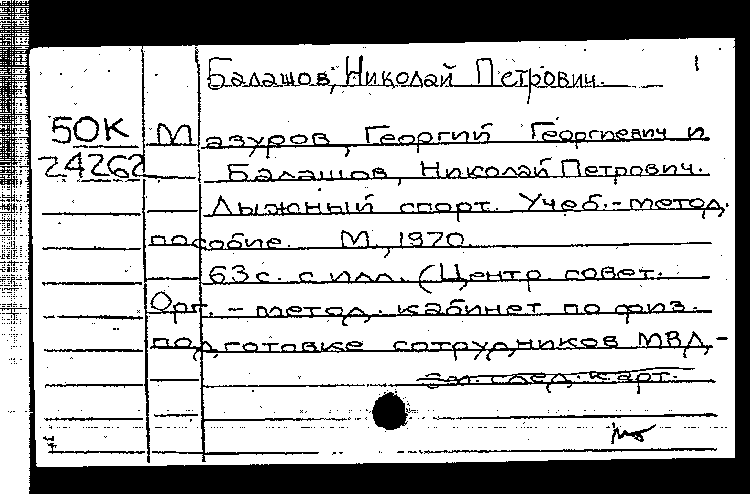 Балашов, Николай Петрович. 1
50К Мазуров, Георгий Георгиевич и
24262 Балашов, Николай Петрович.
Лыжный спорт. Учеб.-метод.
пособие. М., 1970.
63 с. с илл. (Центр. совет.
Орг.-метод. кабинет по физ.
подготовке сотрудников МВД-
См. след. карт.